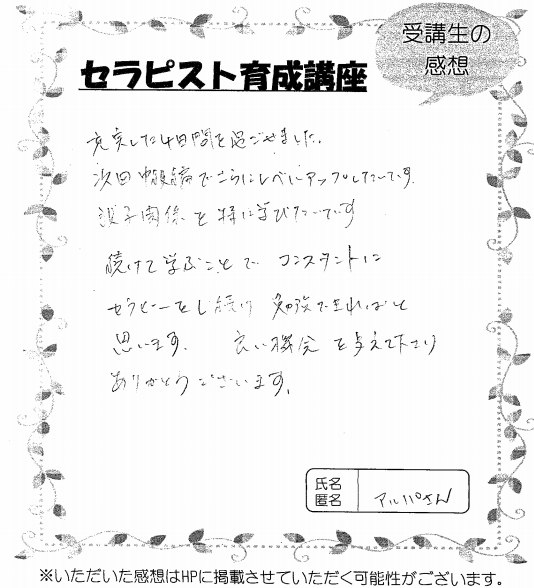 受講生の
感想
セラピスト育成講座
充実した4日間を過ごせました。
次回中級編でさらにレベルアップしたいです。
親子関係を特に学びたいです
続けて学ぶことで コンスタントに
セラピーをし続け 勉強できればと
思います。 良い機会を与えて下さり
ありがとうございます。
氏名
匿名
アルパさん
※いただいた感想はHPに掲載させていただく可能性がございます。